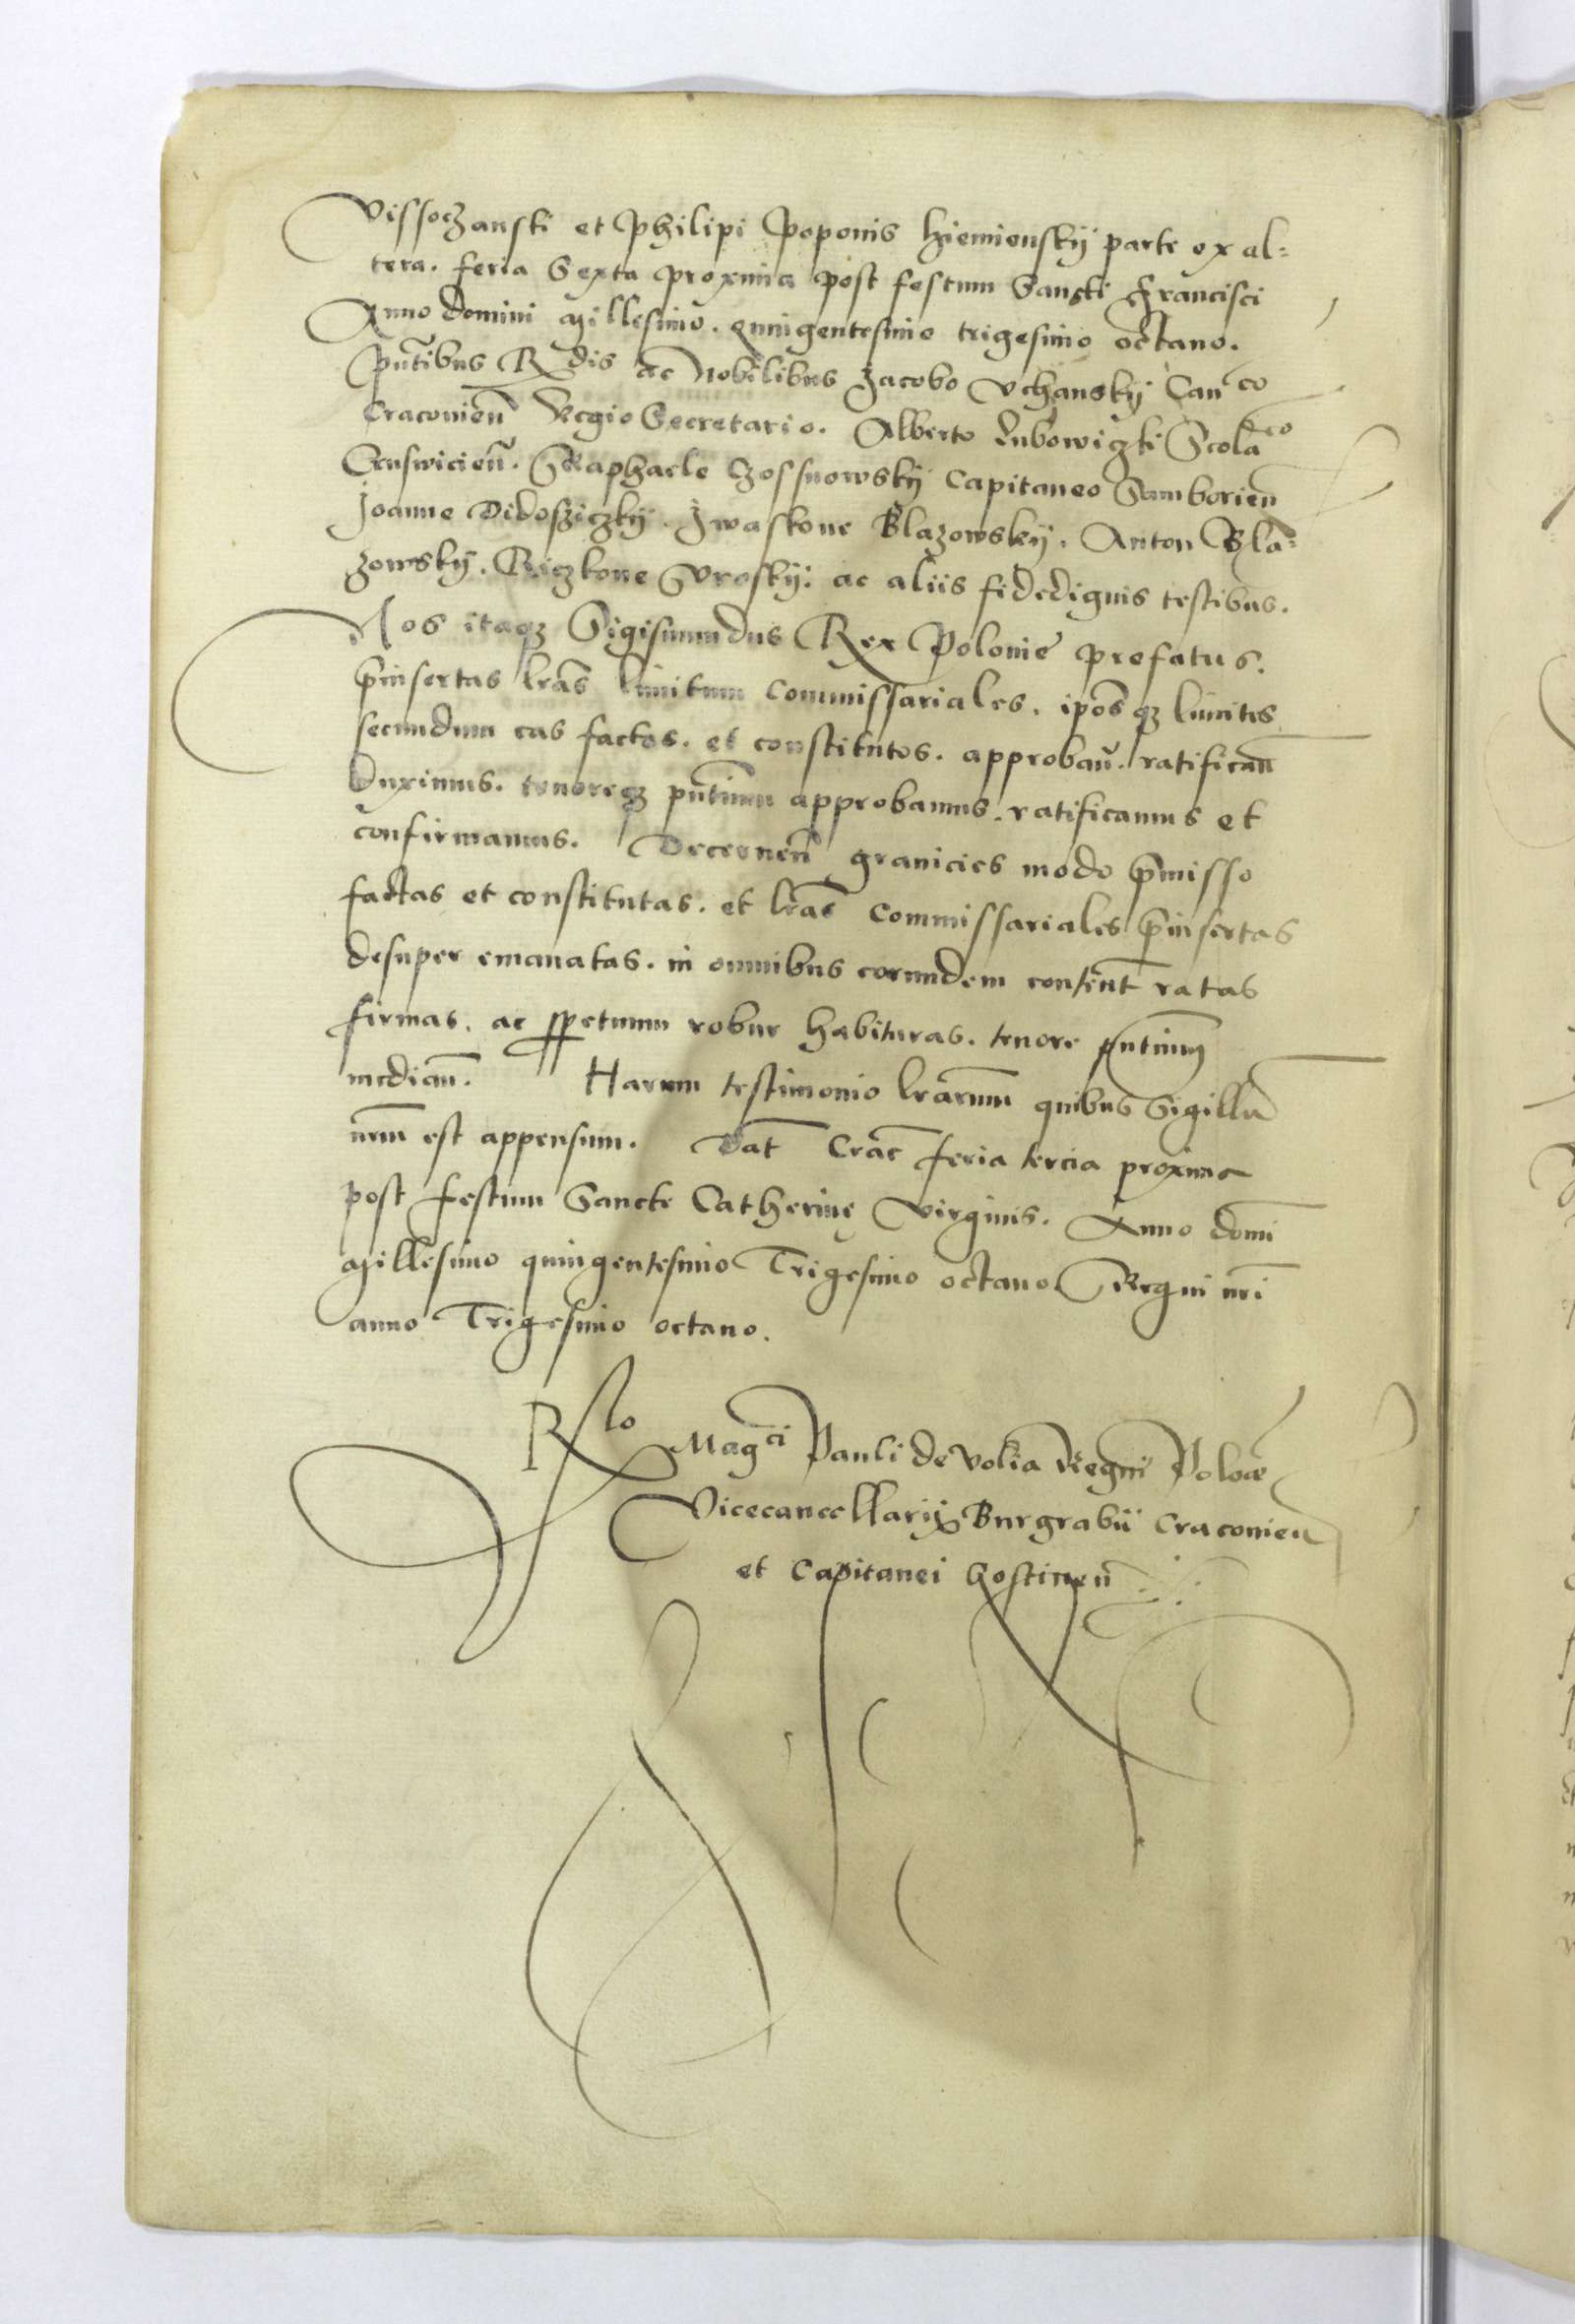 Vissoczanski et Philipi Poponis hiemienskÿ parte ex al=
tera. feria Sexta proxima post festum Sancti Francisci
Anno domini Millesimo. quingentesimo trigesimo octavo.
Pñtibus R̃dis ac Nobilibus Jacobo Vchanskÿ Canco
Cracovieñ Regio Secretario. Alberto Lubowiczki Scolaco
Raphaele Czossnowskÿ Capitaneo Samborieñ
Joanne Didosziczkÿ. Jwaskone Blazowskÿ. Anton Bla=
zowskÿ. Riczkone ac aliis fidedignis testibus.
Nos itaqz Sigismundus Rex Polonie prefatus.
p̃insertas lr̃as limitum Commissariales. ip̃osqz limites
secundum eas factos. et constitutos. approbañ. ratificañ
duximus. tenoreqz pñtium approbamus. ratificamus et
confirmamus. Decerneñ granicies modo p̃misso
factas et constitutas. et lr̃as Commissariales p̃insertas
desuper emanatas. in omnibus eorundem content̃ ratas
firmas. ac ppetuum robur habituras. tenore pñtium
mediañ. Harum testimonio lr̃arum quibus Sigillũ
nr̃m est appensum. Dat̃ Crac̃ feria tercia proxima
post festum Sancte Catherinę Virginis. Anno domĩ
Millesimo quingentesimo Trigesimo octavo Regni nr̃i
anno Trigesimo octavo.
Rlo Magci Pauli de Volia Regni Poloe
Vicecancellarij Burgrabii Cracovieñ
et Capitanei Gostineñ